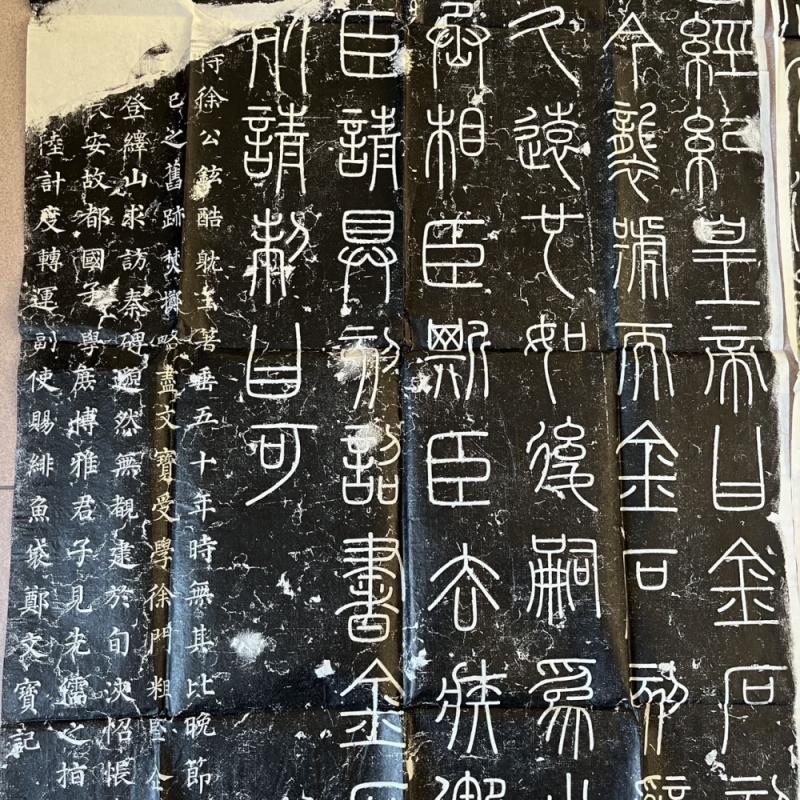 經紀皇帝曰金石刻
今襲號而金石刻辭
久遠也如後嗣爲之
丞相臣斯臣去疾御
臣請具刻詔書金石
死請制曰可
侍徐公鉉酷躭玉箸垂五十年時無其比晚節
已之舊跡焚擲略盡文寶受學徐門粗堅企
登繹山求訪秦碑邈然無覩逮於旬浹怊悵
長安故都國子學庶博雅君子見先儒之指
陸計度轉運副使賜緋魚袋鄭文寶記